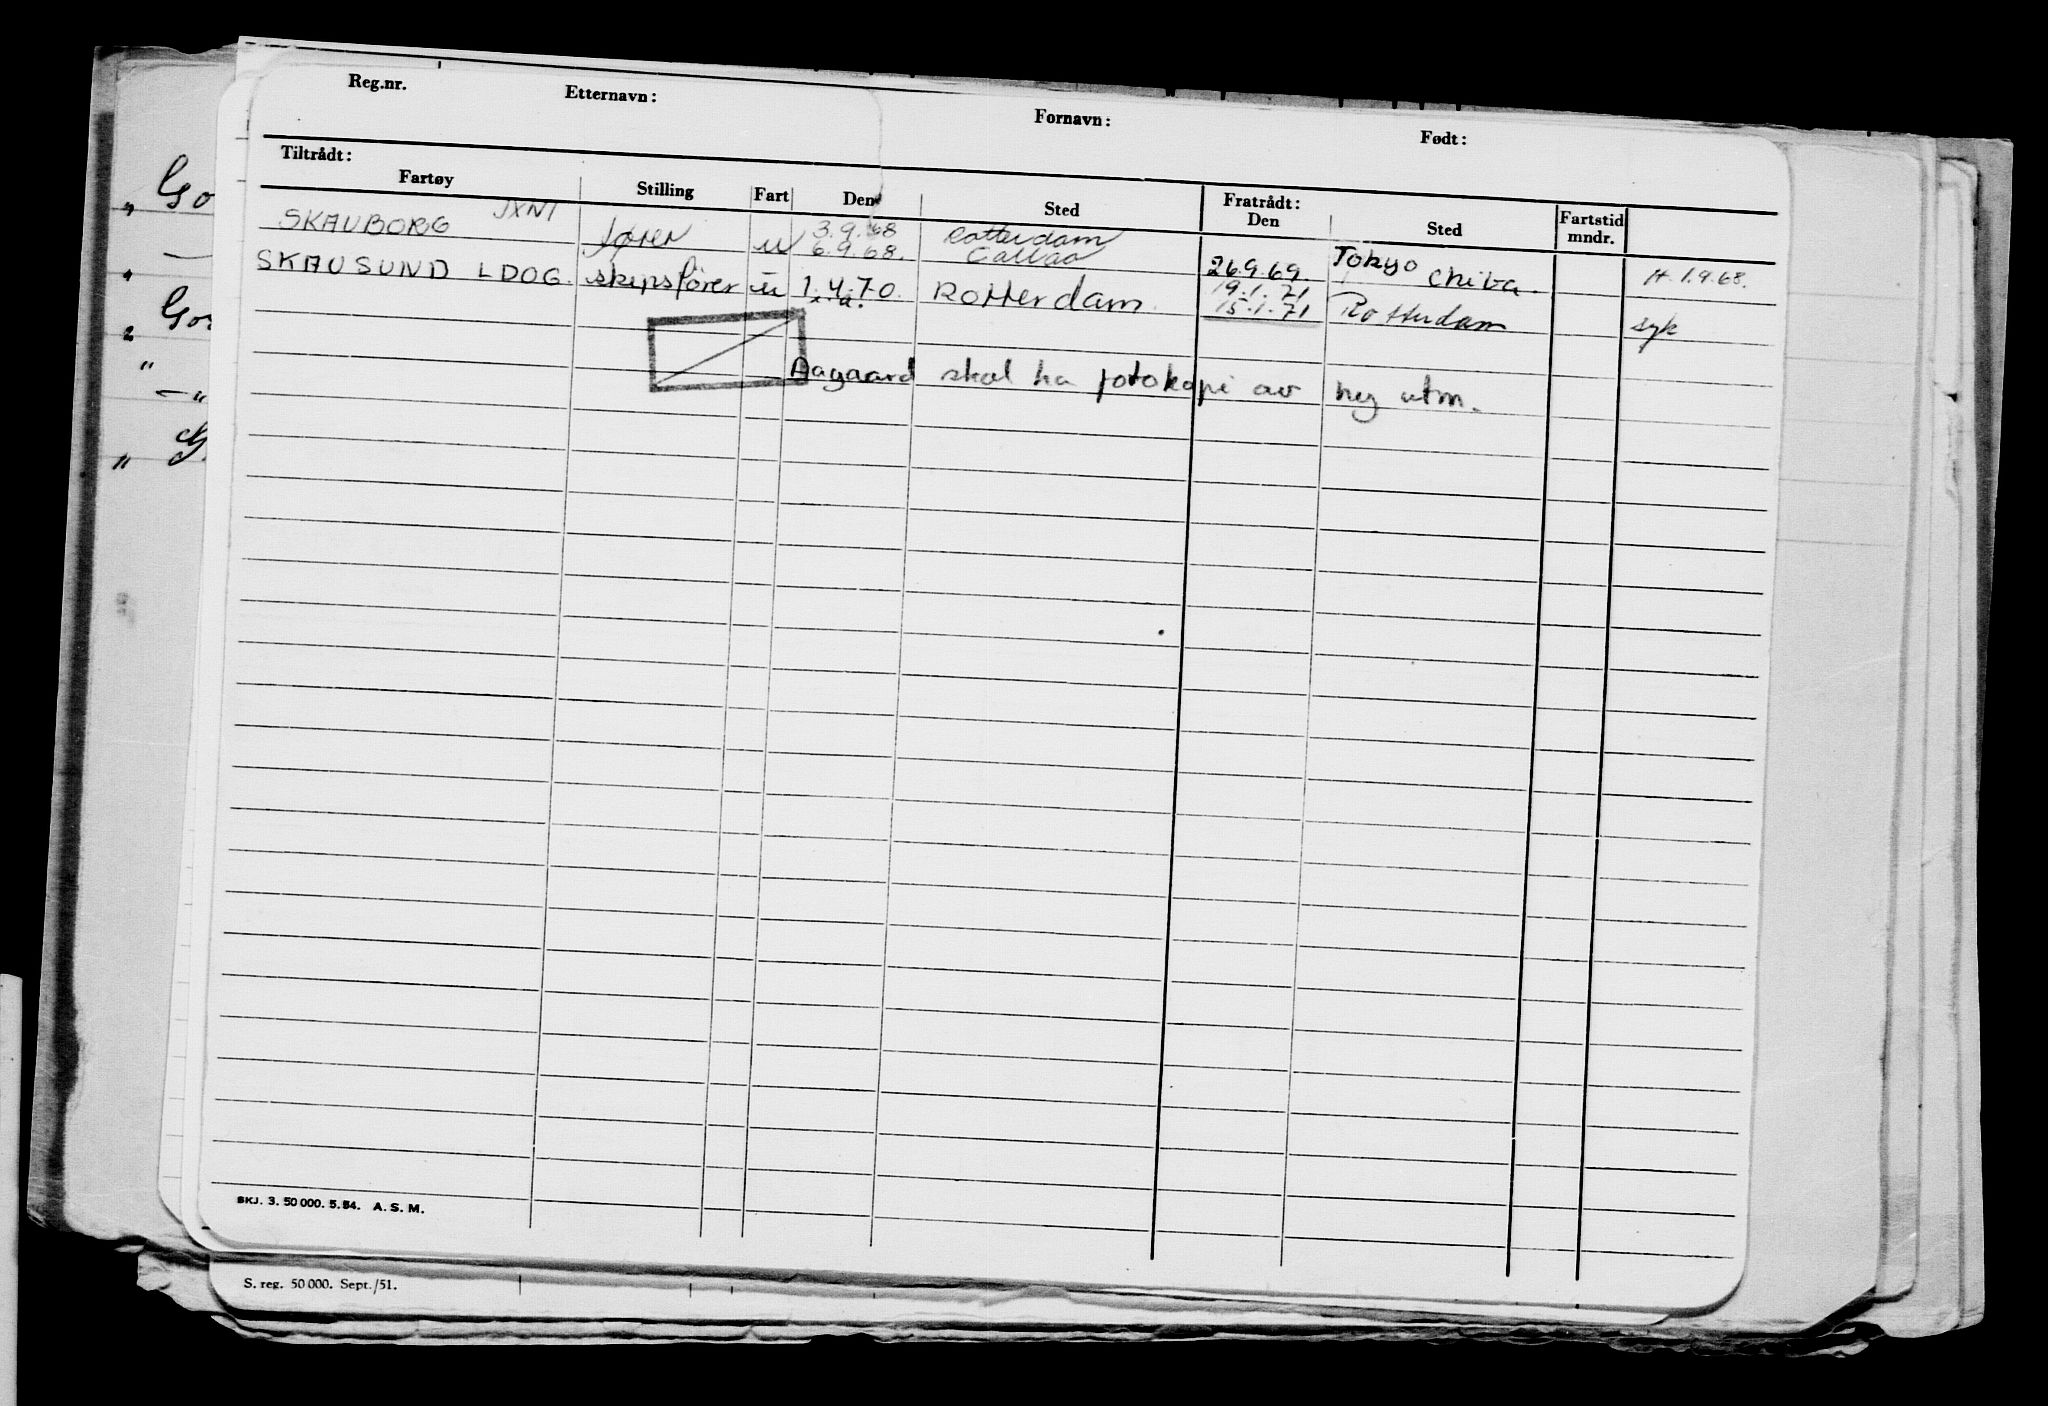 Reg.nr. Etternavn: Fornavn: Født:
Tiltrådt: Fratrådt:
Fartøy Stilling Fart Den Sted Den Sted Fartstid mndr.
SKAUBORG JXNT fører u 3.9.68 Rotterdam
6.9.68. Callao 26.9.69. Tokyo Chiba. H. 1.9.68.
SKAUSUND LDOG. skipsfører u 1.4.70. Rotterdam. 19.1.71
15.1.71 Rotterdam syk
Aagaard skal ha fotokopi av neg utm.
SKJ. 3. 50 000. 5.54. A. S. M.
S. reg. 50 000. Sept./51.